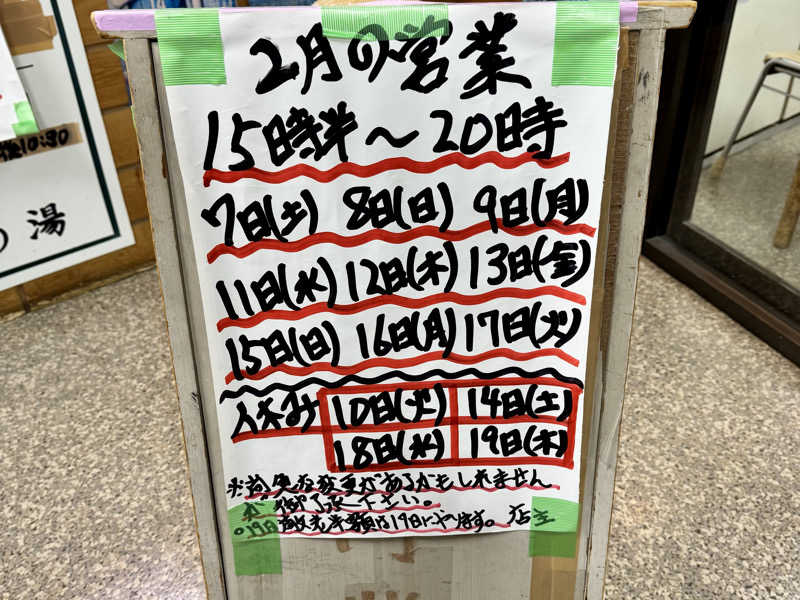 後10:30
湯
2月の営業
15時半～20時
7日(土) 8日(日) 9日(月)
11日(水) 12日(木) 13日(金)
15日(日) 16日(月) 17日(火)
休み 10日(火) 14日(土)
18日(水) 19日(木)
変更があるかもしれません
が御了承下さい。
半額は19日にやります。 店主